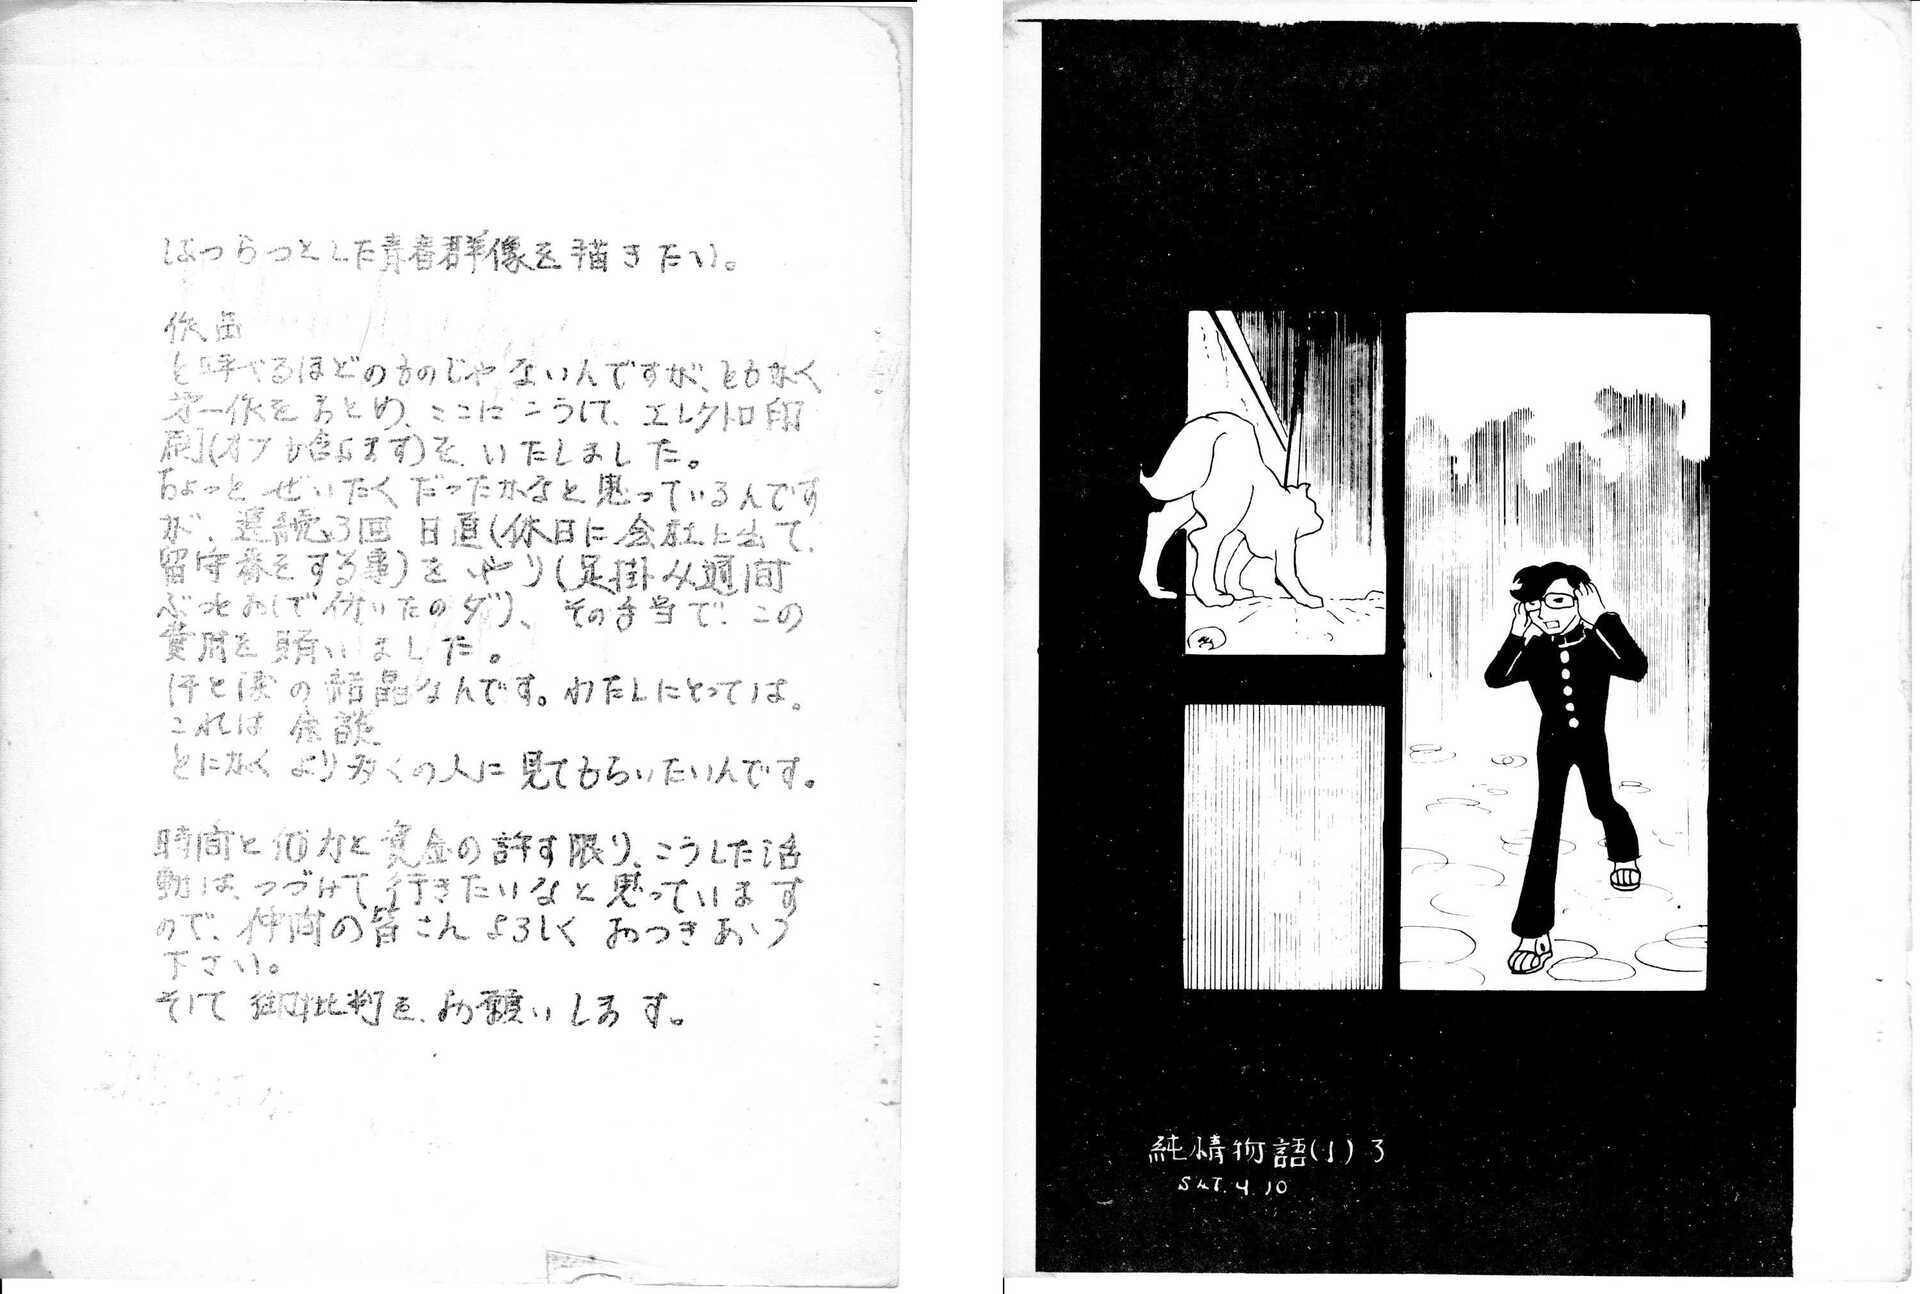 はつらつとした青春群像を描きたい。
作画
と呼べるほどのものじゃないんですが、ともかく
第一作をまとめ、ここにこうして、エレクトロ印
刷(オフも含みます)を、いたしました。
ちょっとぜいたくだったかなと思っているんです
が、連続3回 日直(休日に会社に出て、
留守番をする事)をやり(足掛み週間
ぶっとおしで働いたのダ)、その手当で、この
費用を賄いました。
汗と涙の結晶なんです。わたしにとっては。
これは余談
とにかくより多くの人に見てもらいたいんです。
時間と能力と資金の許す限り、こうした活
動は、つづけて行きたいなと思っています
ので、仲間の皆さんよろしくおつきあい
下さい。
そして御批判を、お願いします。
純情物語(1)3
SAT. 4 10